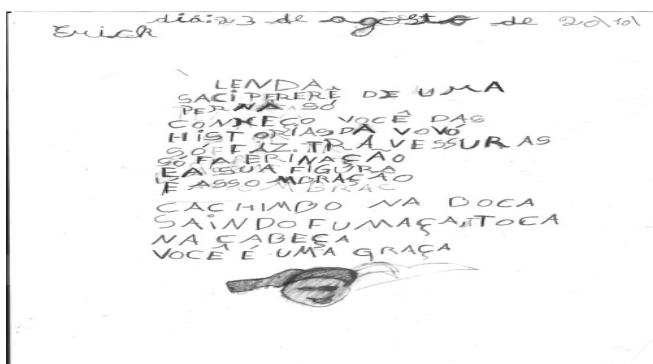 Erick
dia: 23 de agosto de 2010
LENDA
SACI PERERÊ DE UMA
PERNA SÓ
CONHEÇO VOCÊ DAS
HISTORIAS DA VOVÓ
SÓ FAZ. TRAVESSURAS
SÓ FAPERINAÇÃO
E A SUA FIGURA
É ASSOMBRAÇÃO
CACHIMBO NA BOCA
SAINDO FUMAÇA, TOCA
NA ÇABEÇA
VOCÊ É UMA GRAÇA